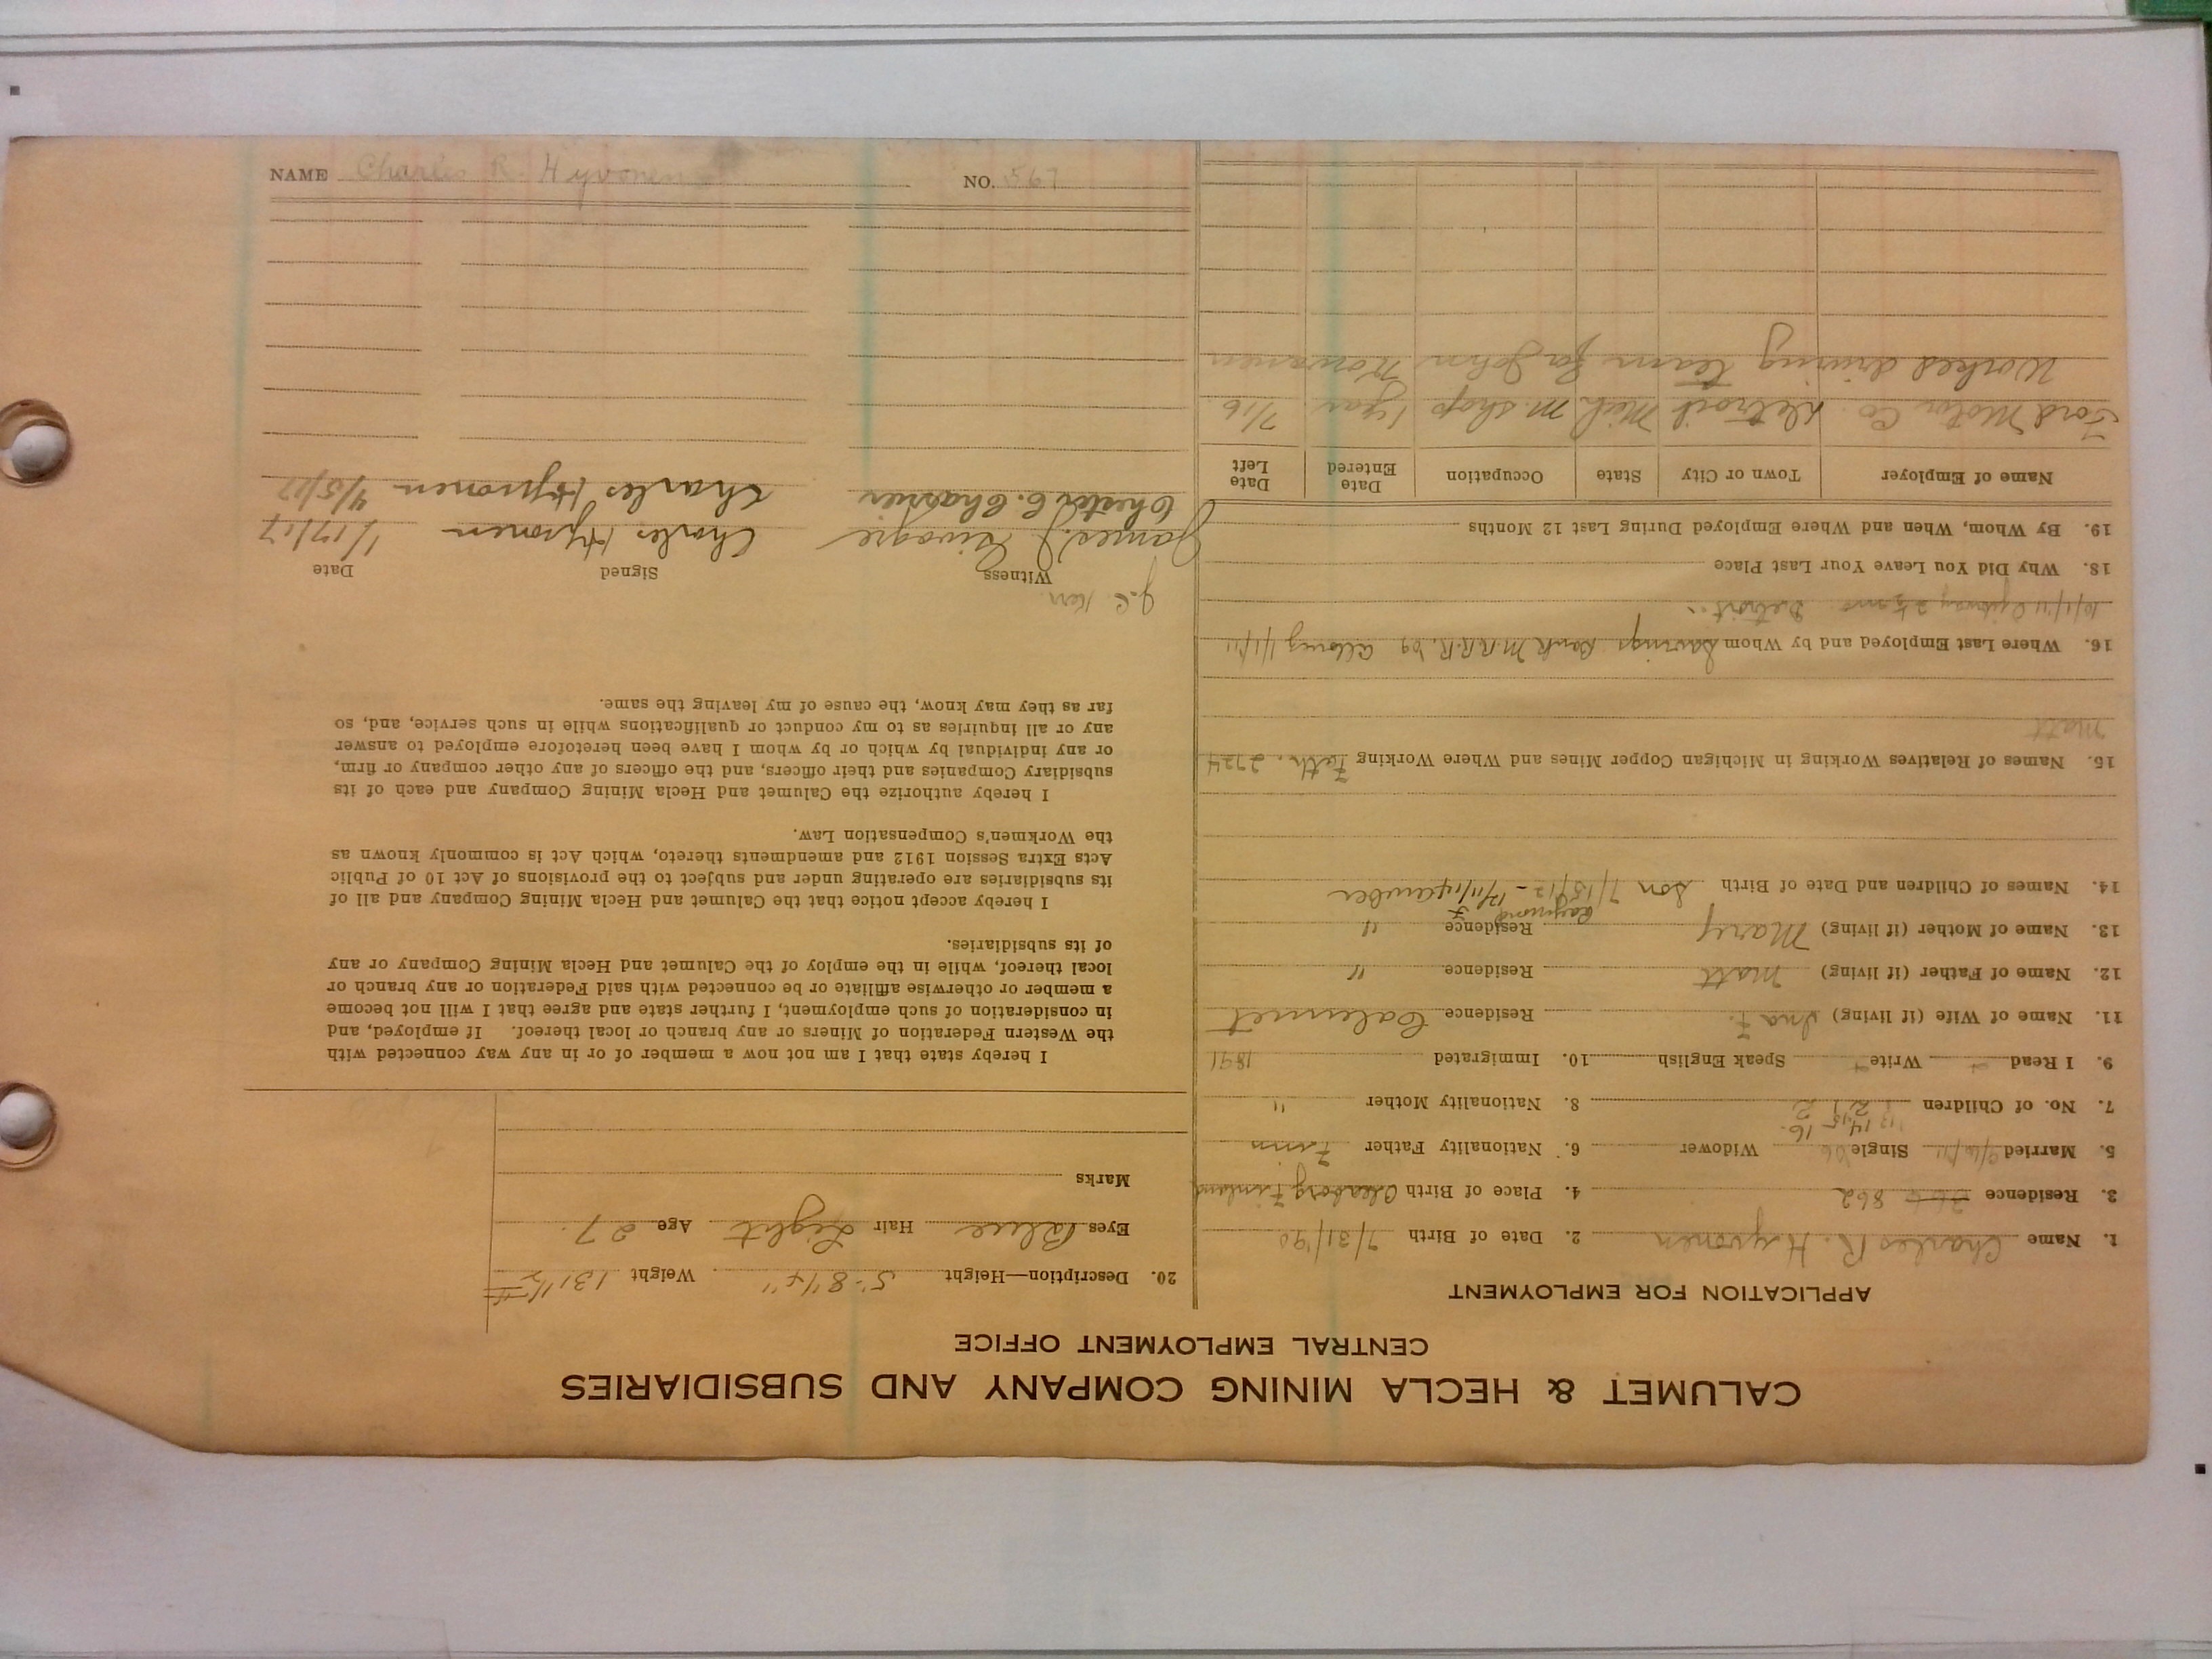 CALUMET & HECLA MINING COMPANY AND SUBSIDIARIES
CENTRAL EMPLOYMENT OFFICE
APPLICATION FOR EMPLOYMENT
1. Name Charles R. Hyvonen 2. Date of Birth 7/31/90
3. Residence 862 4. Place of Birth Oleaborg Finland
5. Married 9/16/11 Single Widower 6. Nationality Father Finn
7. No. of Children 8. Nationality Mother "
9. I Read Write Speak English 10. Immigrated 1891
11. Name of Wife (if living) Ina F. Residence Calumet
12. Name of Father (if living) Matt Residence "
13. Name of Mother (if living) Mary Residence "
Raymond F
14. Names of Children and Date of Birth Son 7/15/12 -
15. Names of Relatives Working in Michigan Copper Mines and Where Working Fath. 2724
Matt
16. Where Last Employed and by Whom Savings Bank M.R.R.R. '09 Allouez 1/1/11
10/1/11 Detroit
18. Why Did You Leave Your Last Place
19. By Whom, When and Where Employed During Last 12 Months
Name of Employer Town or City State Occupation Date Entered Date Left
Ford Motor Co. Detroit Mich M shop 1 year 7/16
Worked driving team for John
20. Description—Height 5'-8 1/4" Weight 131 1/2 #
Eyes Blue Hair Light Age 27
Marks
I hereby state that I am not now a member of or in any way connected with
the Western Federation of Miners or any branch or local thereof. If employed, and
in consideration of such employment, I further state and agree that I will not become
a member or otherwise affiliate or be connected with said Federation or any branch or
local thereof, while in the employ of the Calumet and Hecla Mining Company or any
of its subsidiaries.
I hereby accept notice that the Calumet and Hecla Mining Company and all of
its subsidiaries are operating under and subject to the provisions of Act 10 of Public
Acts Extra Session 1912 and amendments thereto, which Act is commonly known as
the Workmen's Compensation Law.
I hereby authorize the Calumet and Hecla Mining Company and each of its
subsidiary Companies and their officers, and the officers of any other company or firm,
or any individual by which or by whom I have been heretofore employed to answer
any or all inquiries as to my conduct or qualifications while in such service, and, so
far as they may know, the cause of my leaving the same.
J. C. Kerr
Witness Signed Date
James J. Charles Hyvonen 1/17/17
Chester C. Charles Hyvonen 4/5/17
NAME Charles R. Hyvonen NO. 567